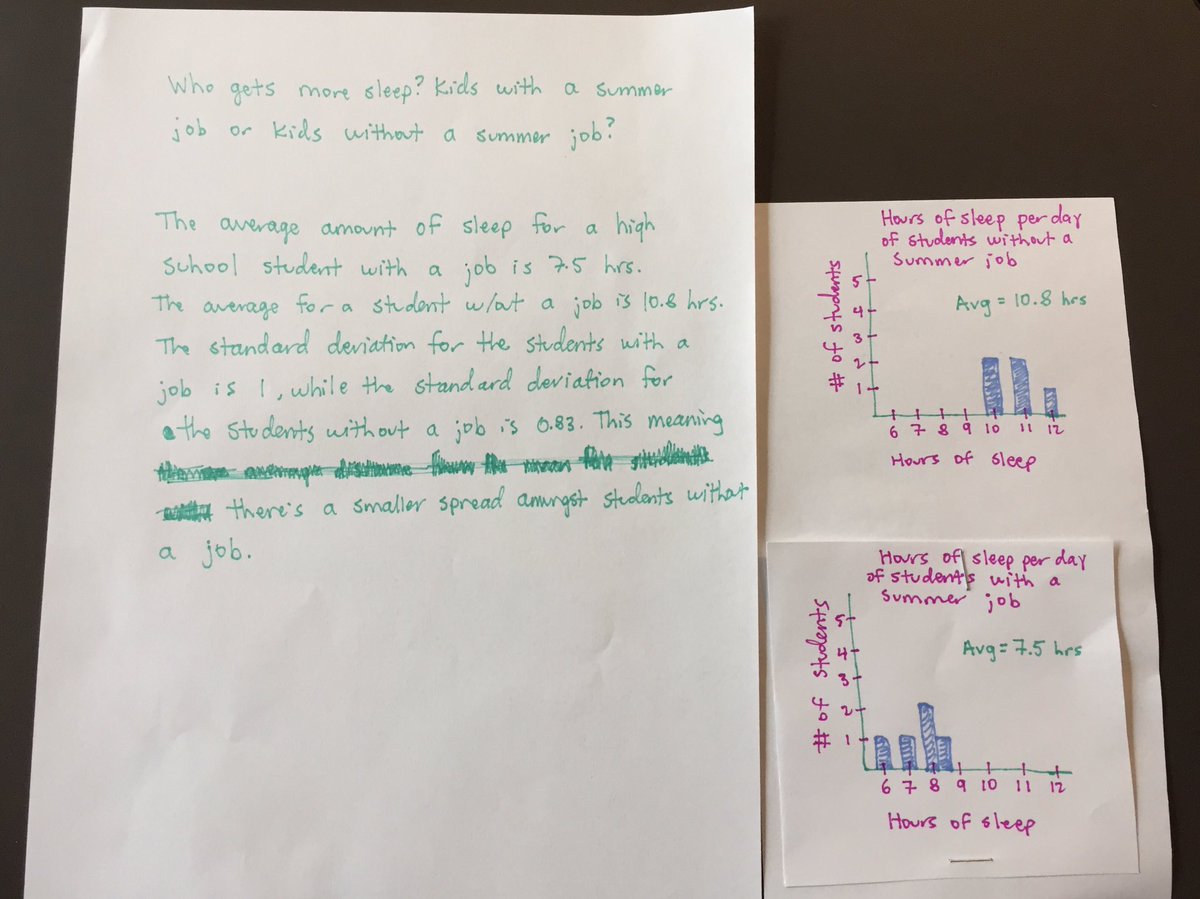 Who gets more sleep? Kids with a summer
job or kids without a summer job?
The average amount of sleep for a high
School student with a job is 7.5 hrs.
The average for a student w/out a job is 10.8 hrs.
The standard deviation for the students with a
job is 1, while the standard deviation for
the students without a job is 0.83. This meaning
there's a smaller spread amungst students without
a job.
Hours of sleep per day
of students without a
Summer job
Avg = 10.8 hrs
# of students
5
4
3
2
1
6 7 8 9 10 11 12
Hours of sleep
Hours of sleep per day
of students with a
Summer job
Avg = 7.5 hrs
# of students
5
4
3
2
1
6 7 8 9 10 11 12
Hours of sleep